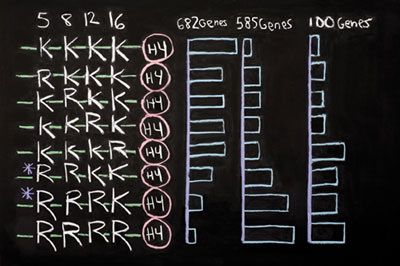 5 8 12 16 682Genes 585Genes 100Genes
K K K K H4
R K K K H4
K R K K H4
K K R K H4
K K K R H4
* R R K K H4
* R R R K H4
R R R R H4